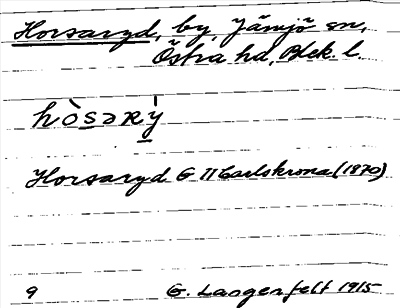 Horsaryd, by, Jämjö sn,
Östra hd, Blek. l.
hòsəRý
Horsaryd G 11 Carlskrona (1870)
9 G. Langenfelt 1915